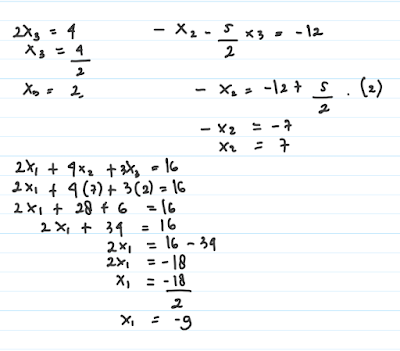 2x₃ = 4
x₃ = 4/2
x₃ = 2
- x₂ - 5/2 x3 = -12
- x₂ = -12 + 5/2 . (2)
- x₂ = -7
x₂ = 7
2x₁ + 4x₂ + 3x₃ = 16
2x₁ + 4(7) + 3(2) = 16
2x₁ + 28 + 6 = 16
2x₁ + 34 = 16
2x₁ = 16 - 34
2x₁ = -18
x₁ = -18/2
x₁ = -9